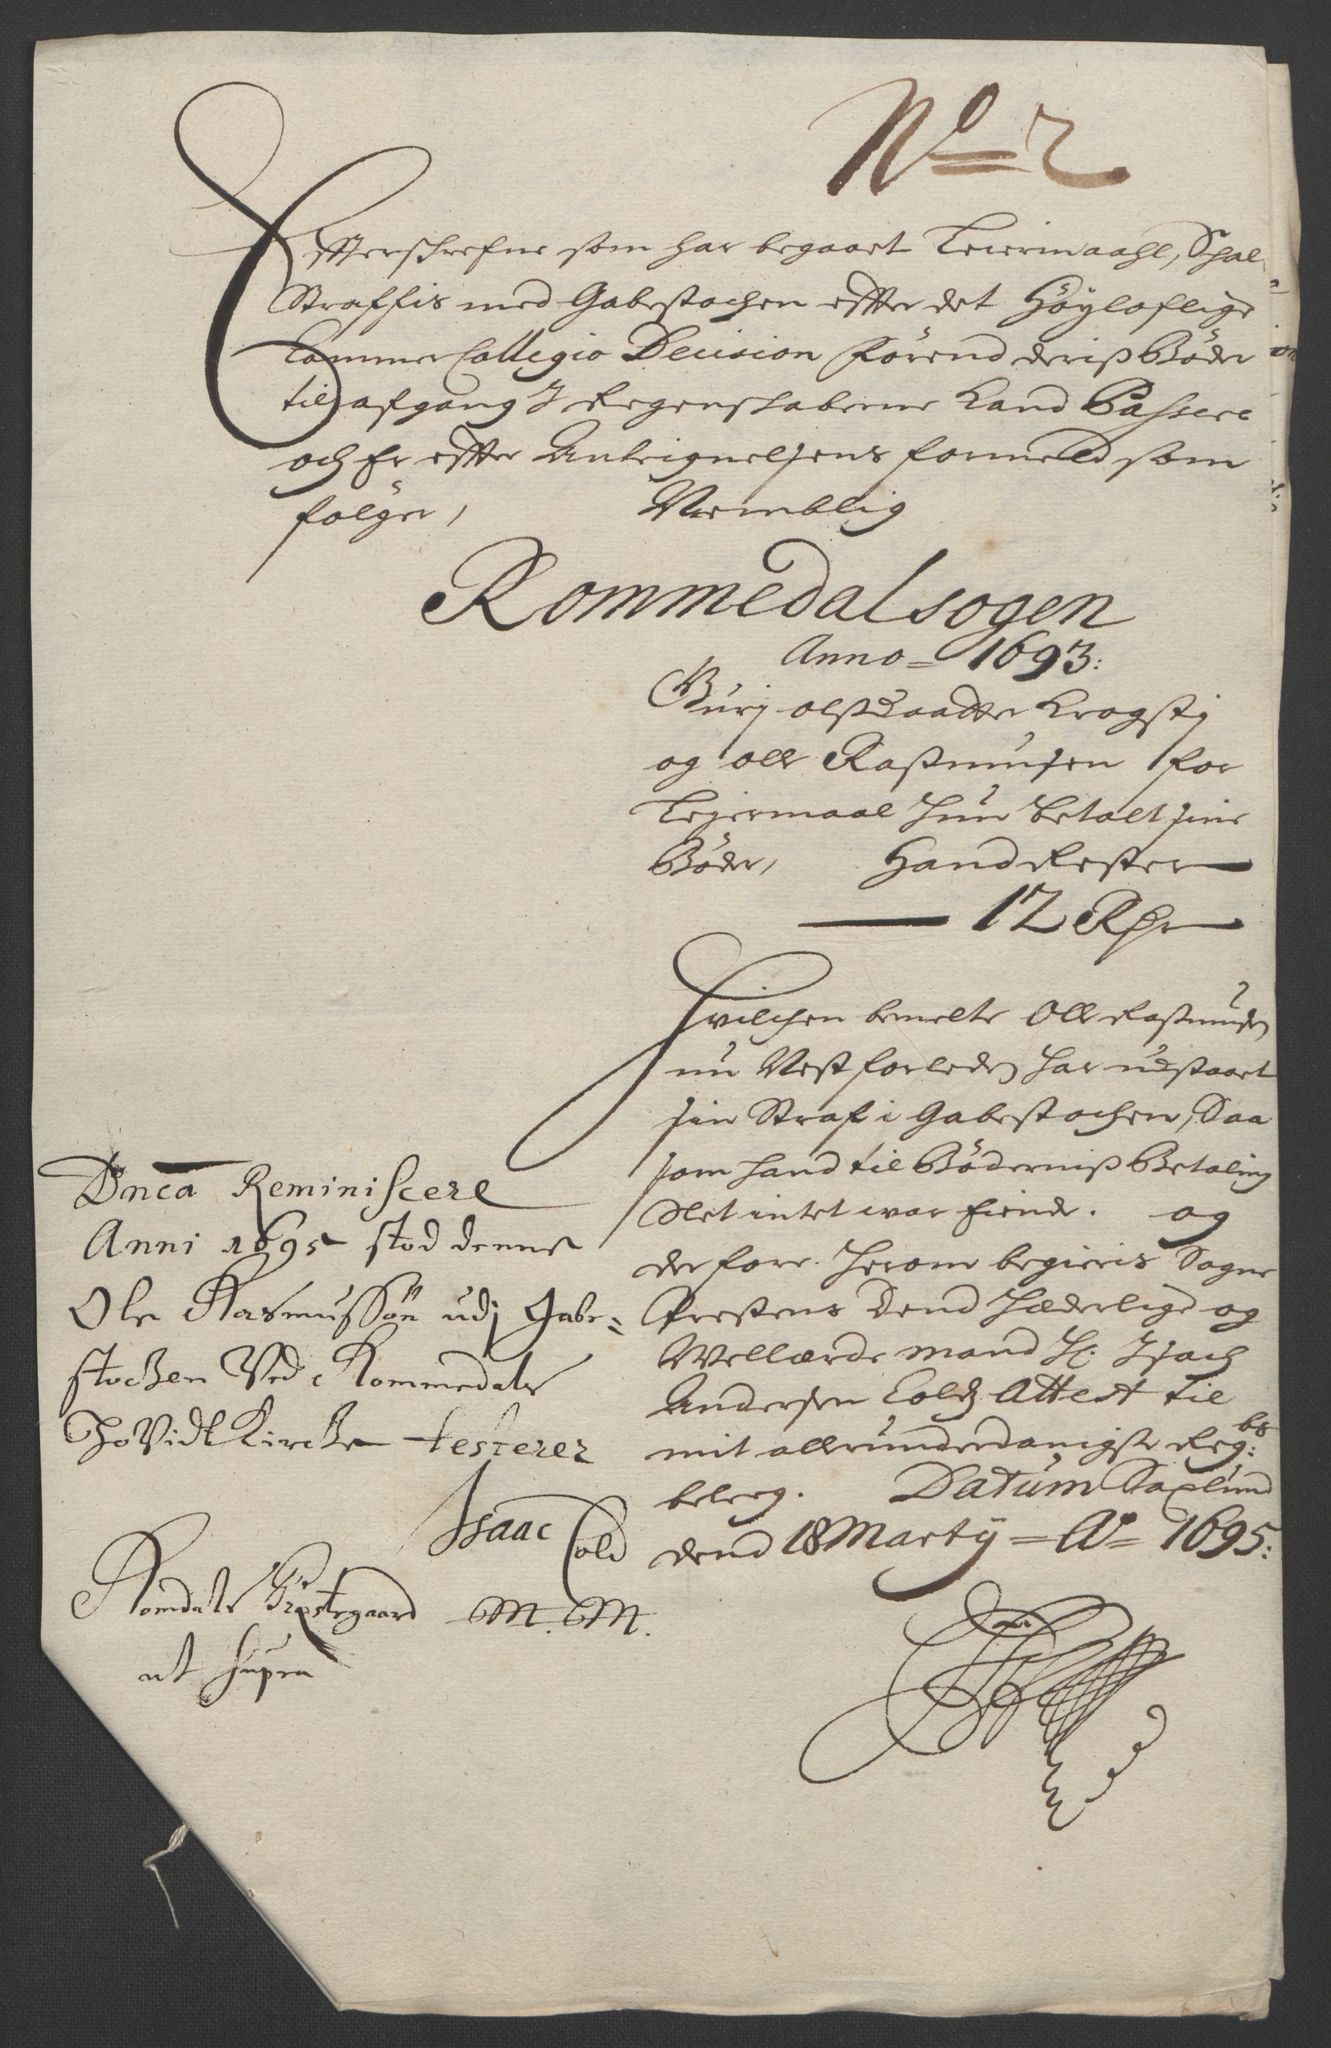 No 2
Effterschrefne som har begaaet Leiermaahl, Schal
Straffis med Gabestochen effter det Höyloflige
Cammer Collegio Decision förend deriß Böder
til afgang I Regenskaberne kand Passere
och Er effter Anteignelsens formeld som
følger, Nemblig
Rommedal sogen
Anno 1693:
Gurj olßdaatter Krogstj
og olle Raßmusen for
Leiermaal hun betalt sine
Böder, Hand Rester
12 Rdr
Hvilchen bemelte Olle Raßmusen
nu Nest forleden har udstaaet
sin Straf i Gabestochen, Saa
som hand til Bödernis Betaling
Slet intet war Eiende. og
derfore herom begieris Sogne
Prestens Dend Hæderlige og
Wellærde mand Hr. Isach
Andersen Colds Attest til
mit allerunderdanigste Regbs:
beleeg. Datum Saxlund
dend 18 Marty Ao 1695:
Dnca Reminiscere
Anni 1695 stod denne
Ole Rasmussøn udj Gabe=
stocken Ved Rommedals
HoVidt Kircke testerer
Isaac Cold
Romdals Præstegaard M. M.
ut supra